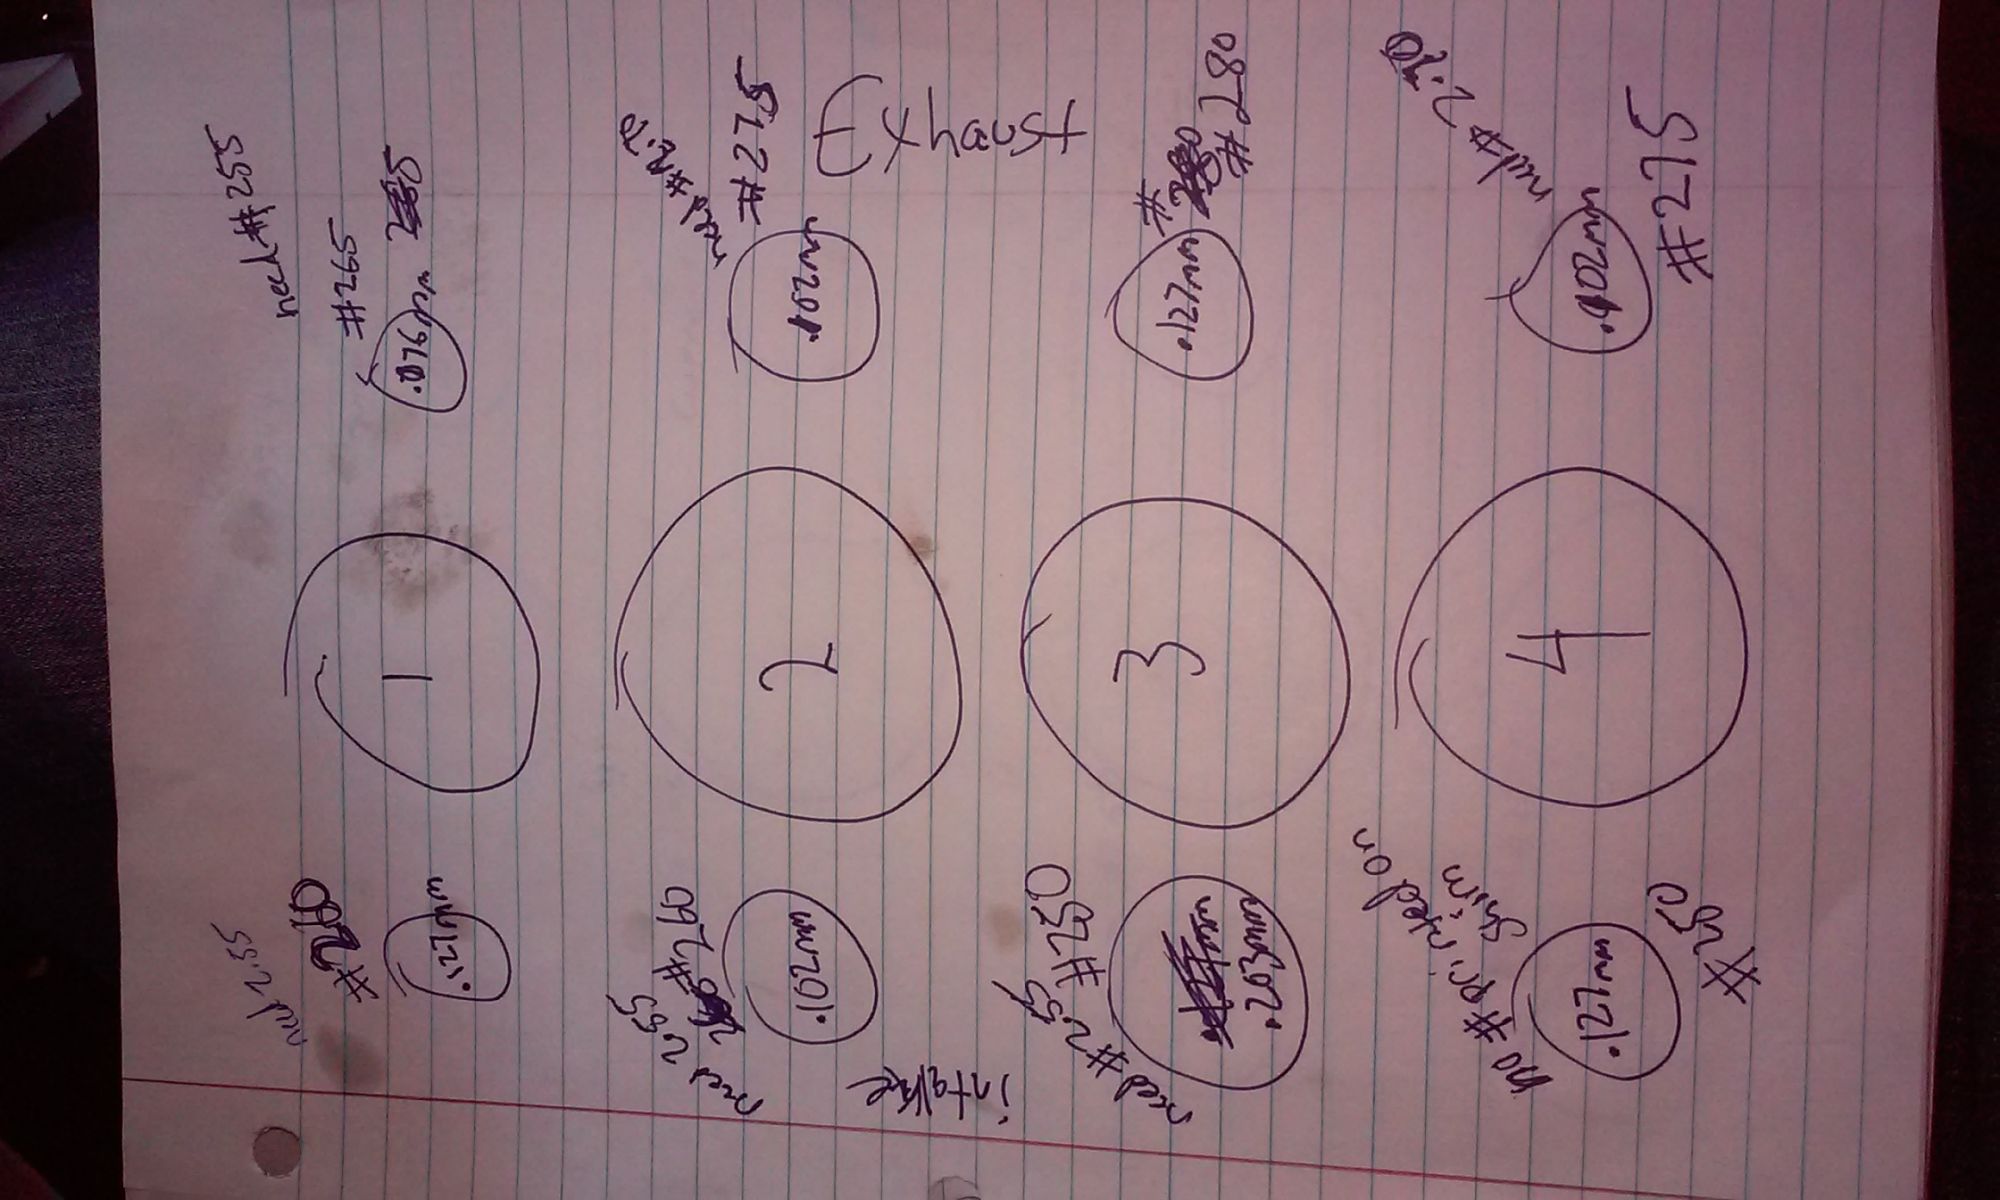 need #255
#265
.076mm
need #2.70
#275
.102mm
Exhaust
#
.127mm
#280
need # 2.70
.102mm
#275
1
2
3
4
need 2.55
#260
.127mm
need 255
#260
.102mm
intake
need #255
#250
.203mm
no # printed on
shim
.127mm
#250